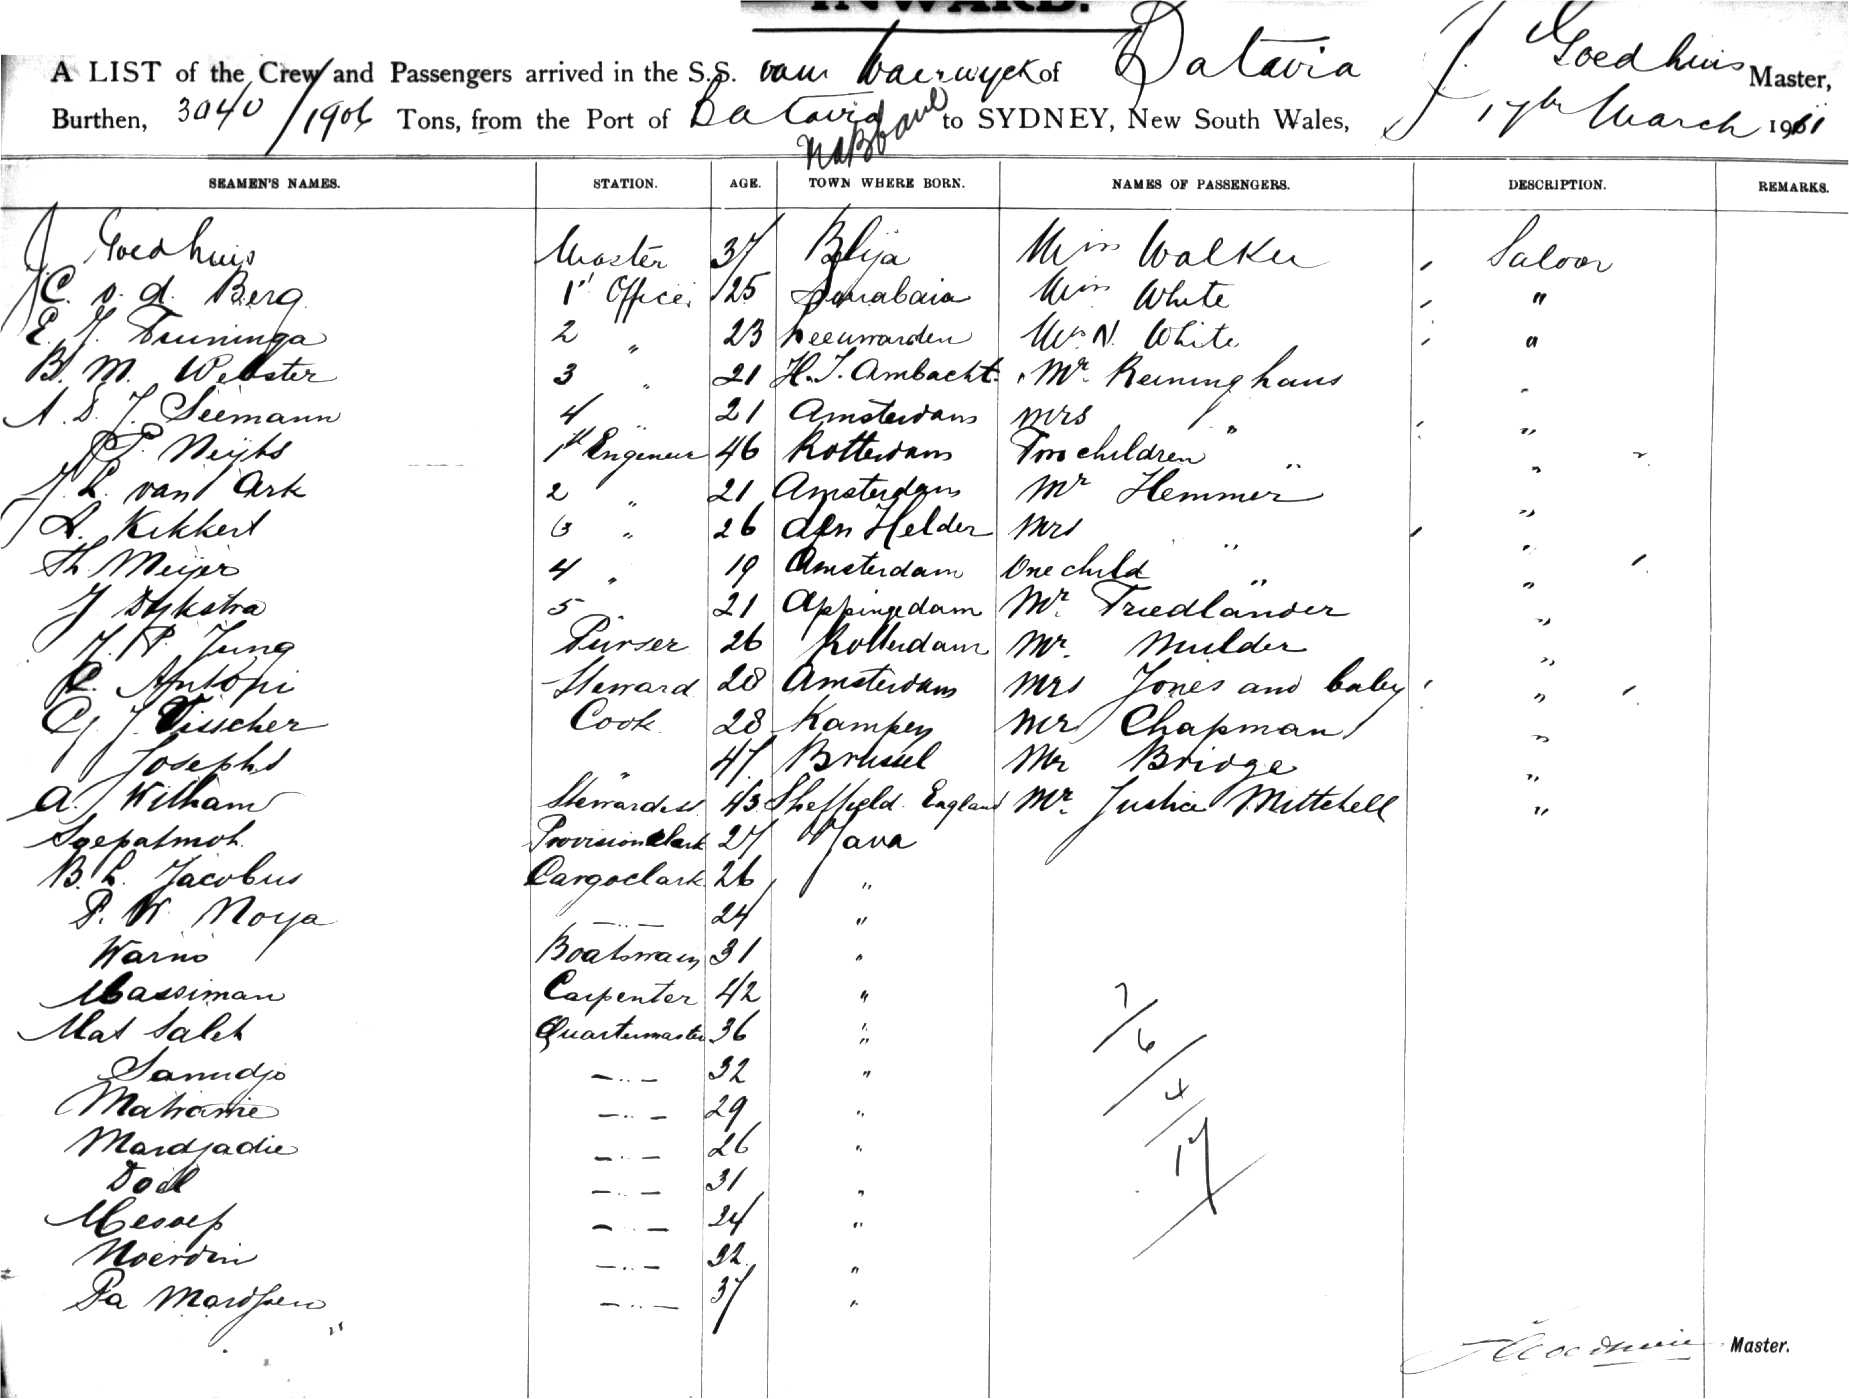 INWARD.
A LIST of the Crew and Passengers arrived in the S.S. van Waerwyck of Batavia J. Goedhuis Master,
Burthen, 3040/1906 Tons, from the Port of Batavia to SYDNEY, New South Wales, 17th March 1911
SEAMEN'S NAMES. STATION. AGE. TOWN WHERE BORN. NAMES OF PASSENGERS. DESCRIPTION. REMARKS.
J. Goedhuis Master 37 Blija Miss Walker Saloon
J. C. v. d. Berg 1t Officer 25 Soerabaia Miss White "
E. J. Truninga 2 " 23 Leeuwarden Mrs N. White "
B. M. Webster 3 " 21 H. I. Ambacht Mr. Reininghaus "
A. D. J. Seemann 4 " 21 Amsterdam Mrs " "
P. Meijts 1st Engineer 46 Rotterdam Two children " "
J. L. van Ark 2 " 21 Amsterdam Mr Hemmer "
A. Kikkert 3 " 26 den Helder Mrs " "
Th. Meijer 4 " 19 Amsterdam One child " "
J Dykstra 5 21 Appingedam Mr. Friedländer "
J. P. Jung Purser 26 Rotterdam Mr. Mulder "
Steward 28 Amsterdam Mrs Jones and baby "
G. J. Visscher Cook 28 Kampen Mr Chapman "
Josephs " 47 Brussel Mr Bridge "
A. Witham Stewardess 43 Sheffield. England Mr. Justice Mittchell "
Sgepatmoh. Provisionclark 27 Java
B. L. Jacobus Cargoclark 26 "
P. W. Noya — " — 24 "
Warno Boatswain 31 "
Massiman Carpenter 42 "
Mat Saleh Quartermaster 36 "
Sanudjo — " — 32 "
Matramie — " — 29 "
Mardjadie — " — 26 "
Doel — " — 31 "
Mesoep — " — 24 "
Noerdin — " — 32 "
Pa Mardjoen — " — 37 "
7/6/4/17
Master.